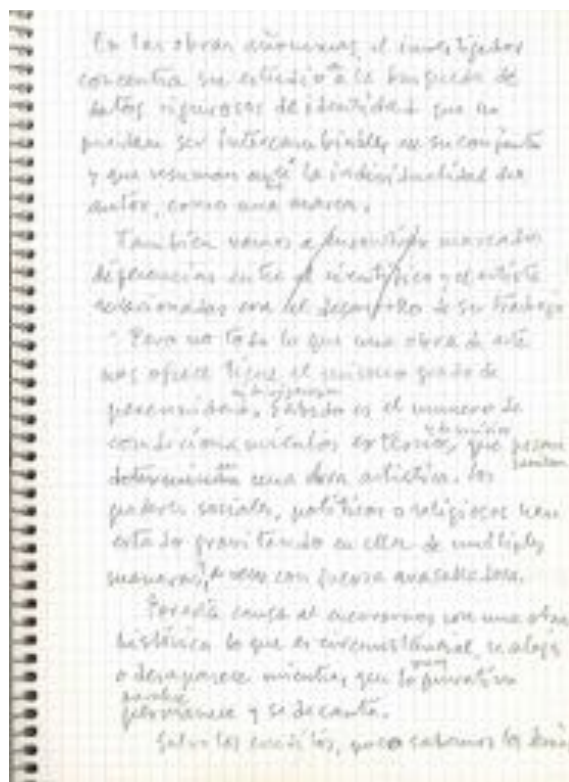 En las obras anónimas, el investigador
concentra su estudio a la búsqueda de
datos rigurosos de identidad que no
puedan ser intercambiables en su conjunto
y que resuman así la individualidad del
autor, como una marca.
También vamos a encontrar marcadas
diferencias entre el científico y el artista
relacionadas con el desarrollo de su trabajo
Pero no todo lo que una obra de arte
nos ofrece tiene el mismo grado de
Sabido es el número de
condicionamientos exteriores, que pesan
determinan una obra artística. Los
poderes sociales, políticos o religiosos han
estado gravitando en ella de múltiples
maneras, a veces con fuerza avasalladora.
Por esta causa al encararnos con una obra
histórica lo que es circunstancial, se aleja
o desaparece mientras que lo
permanece y se decanta.
Salvo los eruditos, pocos sabemos los